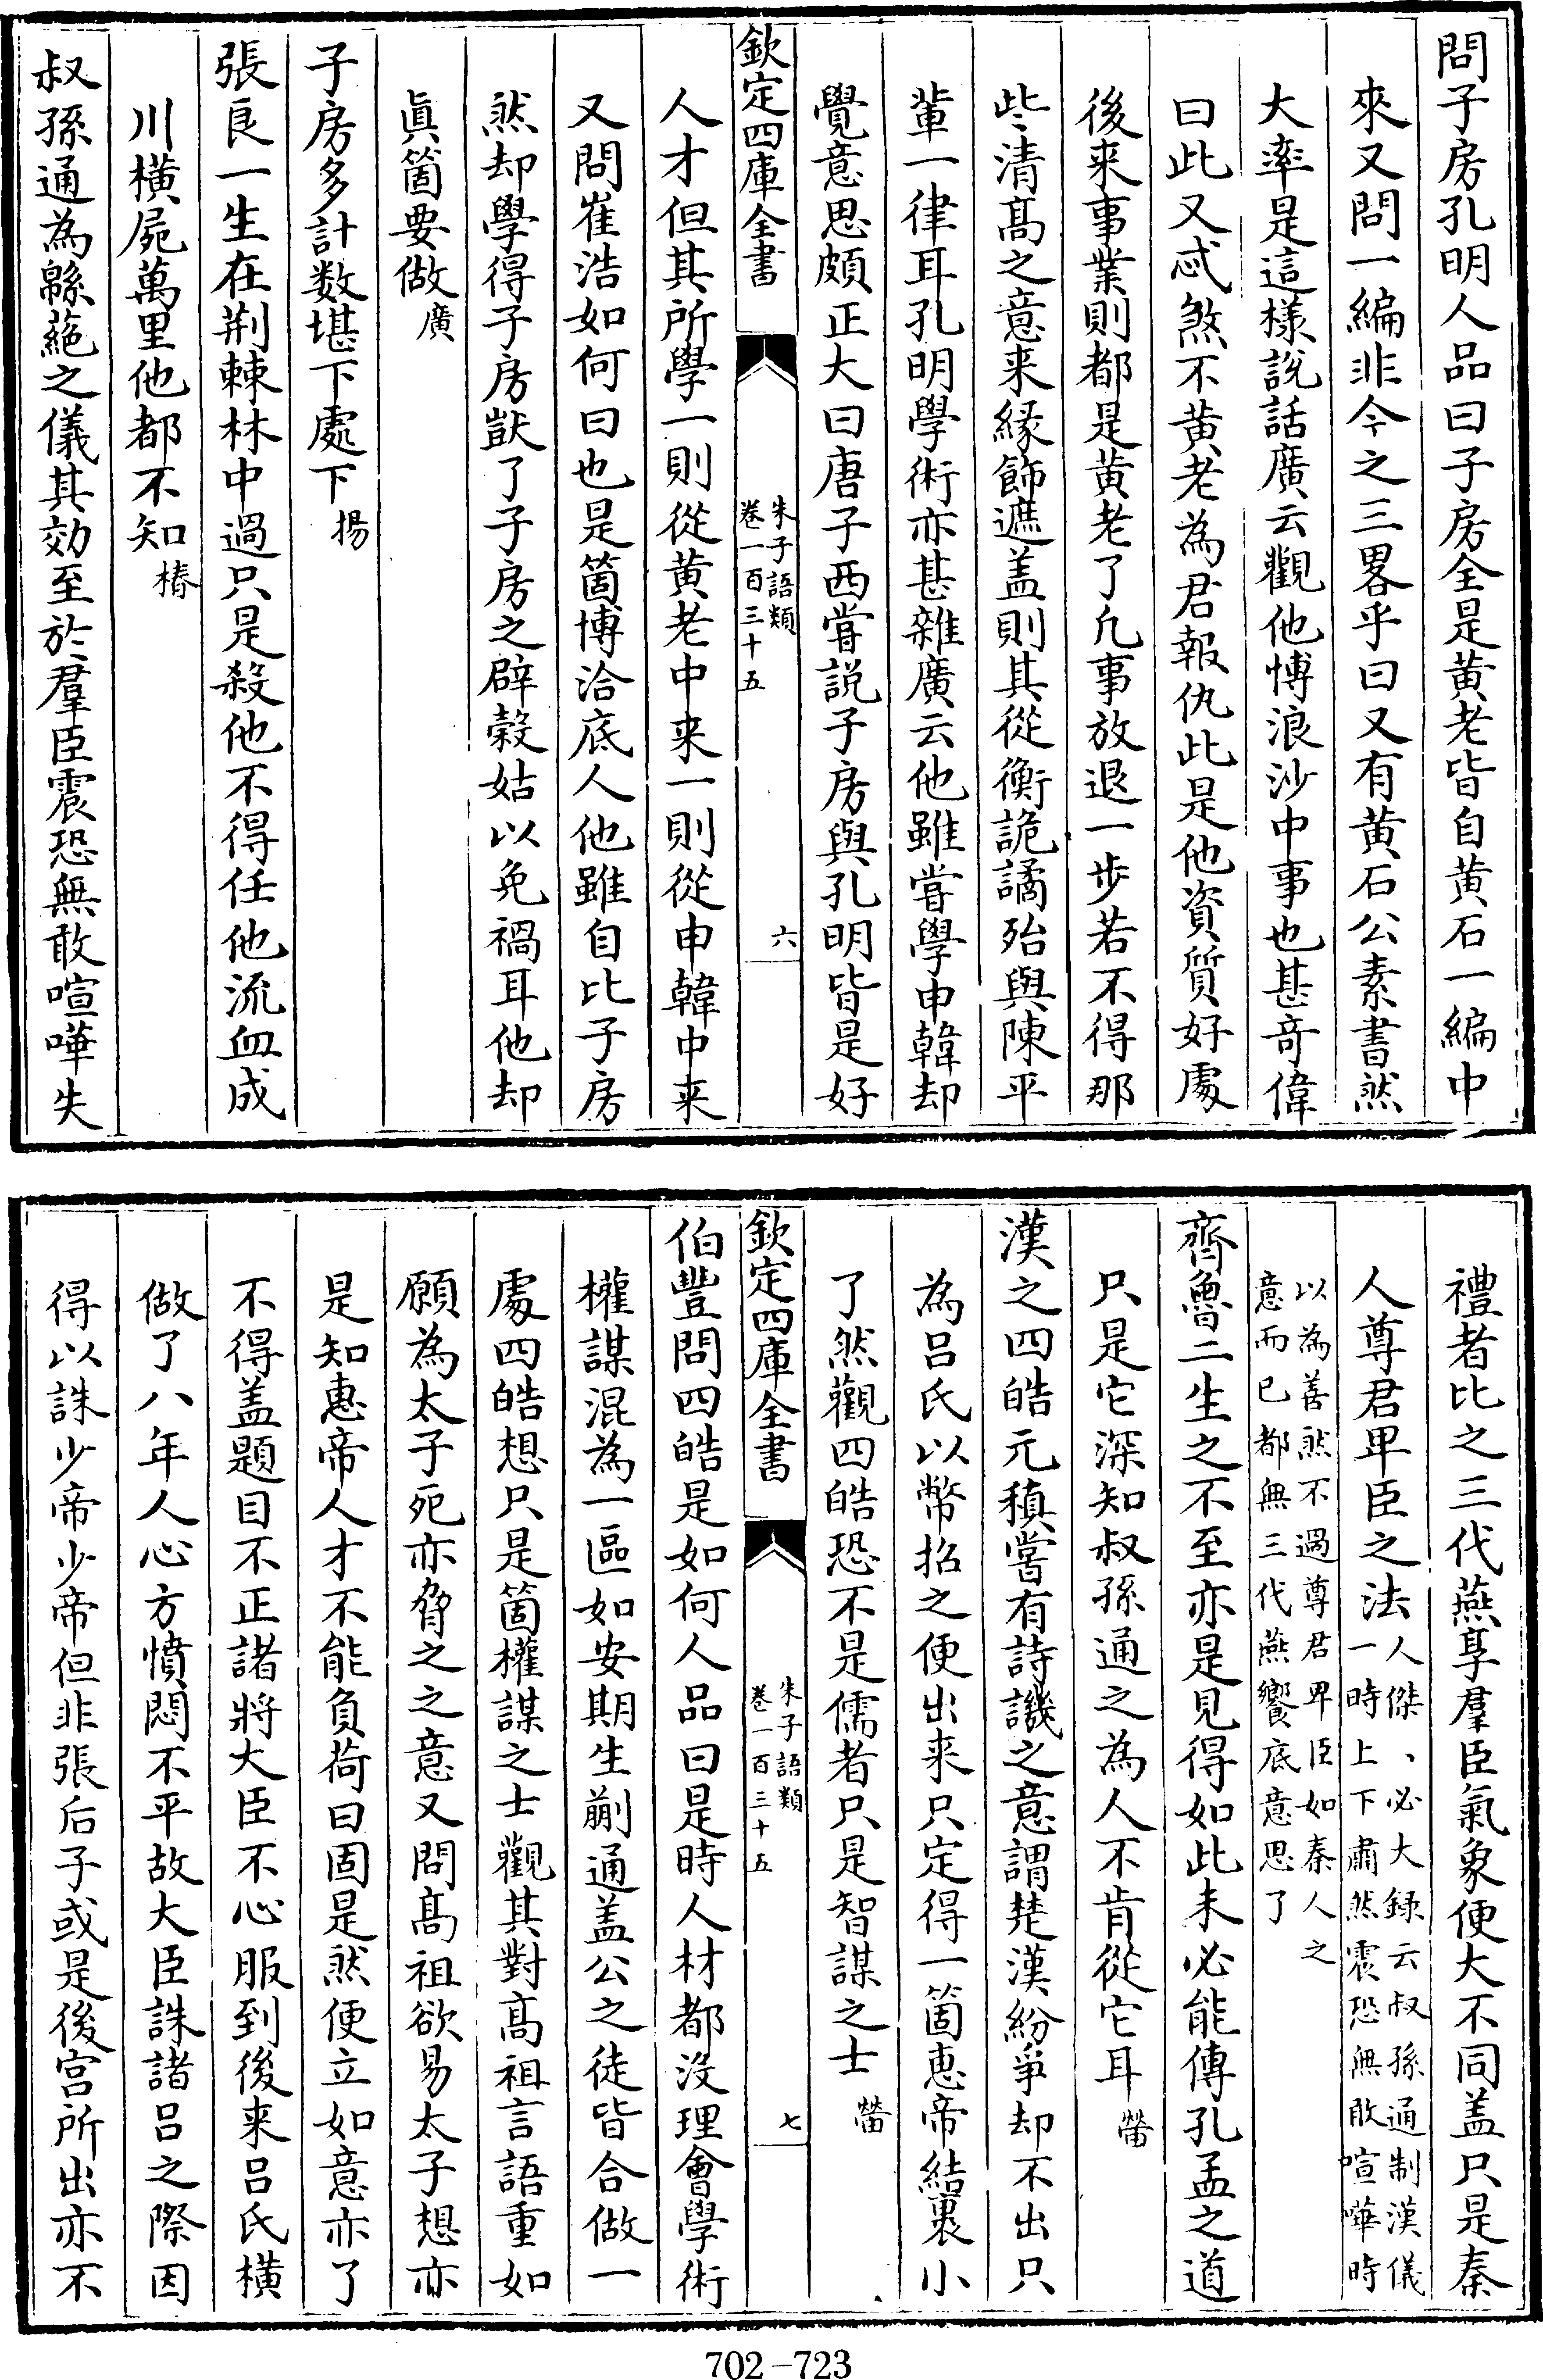 問子房孔明人品曰子房全是黄老皆自黄石一編中
來又問一編非今之三畧乎曰又有黄石公素書然
大率是這様說話廣云觀他愽浪沙中事也甚竒偉
曰此又忒煞不黄老為君報仇此是他資質好處
後来事業則都是黄老了凢事放退一歩若不得那
些清髙之意来縁飾遮盖則其從衡詭譎殆與陳平
輩一律耳孔明學術亦甚雜廣云他雖嘗學申韓却
覺意思頗正大曰唐子西嘗説子房與孔明皆是好
欽定四庫全書
朱子語類
卷一百三十五
六
人才但其所學一則從黄老中来一則從申韓中来
又問崔浩如何曰也是箇博洽底人他雖自比子房
然却學得子房獃了子房之辟榖姑以免禍耳他却
眞箇要做廣
子房多計数堪下處下揚
張良一生在荆棘林中過只是殺他不得任他流血成
川横屍萬里他都不知椿
叔孫通為緜蕝之儀其効至於羣臣震恐無敢喧嘩失
禮者比之三代燕享羣臣氣象便大不同盖只是秦
人尊君卑臣之法人傑、必大録云叔孫通制漢儀
一時上下肅然震恐無敢喧嘩時
以為善然不過尊君卑臣如秦人之
意而已都無三代燕饗底意思了
齊魯二生之不至亦是見得如此未必能傳孔孟之道
只是它深知叔孫通之為人不肯從它耳㽦
漢之四皓元稹嘗有詩譏之意謂楚漢紛爭却不出只
為呂氏以幣招之便出来只定得一箇惠帝結裹小
了然觀四皓恐不是儒者只是智謀之士㽦
欽定四庫全書
朱子語類
卷一百三十五
七
伯豐問四皓是如何人品曰是時人材都没理會學術
權謀混為一區如安期生蒯通盖公之徒皆合做一
處四皓想只是箇權謀之士觀其對髙祖言語重如
願為太子死亦脅之之意又問髙祖欲易太子想亦
是知惠帝人才不能負荷曰固是然便立如意亦了
不得盖題目不正諸將大臣不心服到後来呂氏横
做了八年人心方憤悶不平故大臣誅諸呂之際因
得以誅少帝少帝但非張后子或是後宫所出亦不
702-723